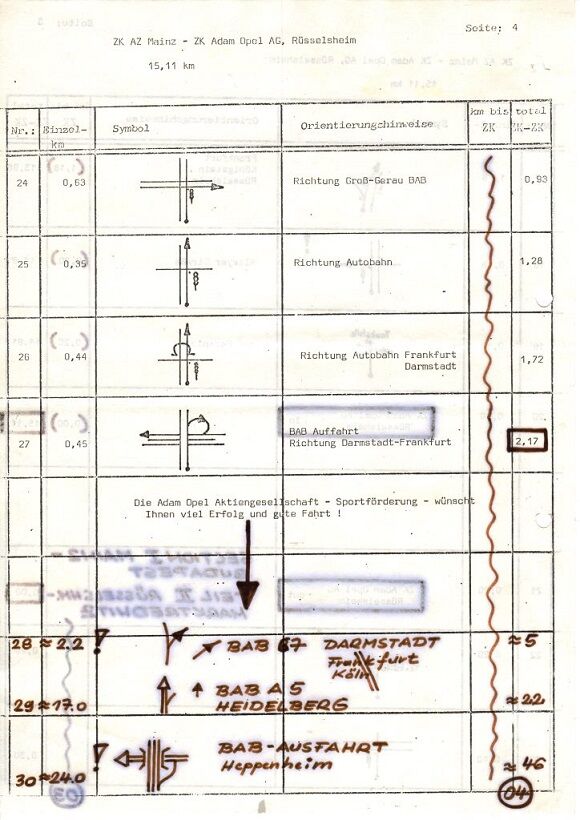 Seite: 4
ZK AZ Mainz - ZK Adam Opel AG, Rüsselsheim
15,11 km
Nr.: Einzel-km Symbol Orientierungshinweise km bis ZK total ZK-ZK
24 0,63 Richtung Groß-Gerau BAB 0,93
25 0,35 Richtung Autobahn 1,28
26 0,44 Richtung Autobahn Frankfurt 1,72
Darmstadt
BAB Auffahrt
27 0,45 Richtung Darmstadt-Frankfurt 2,17
Die Adam Opel Aktiengesellschaft - Sportförderung - wünscht
Ihnen viel Erfolg und gute Fahrt !
SECTION I MAINZ-
BUDAPEST
TEIL II RÜSSELSHM.-
MARKTREDWITZ
28 ≈ 2.2 ! BAB 67 DARMSTADT ≈ 5
Frankfurt
Köln
29 ≈ 17.0 BAB A 5 ≈ 22
HEIDELBERG
! BAB-AUSFAHRT
30 ≈ 24.0 Heppenheim ≈ 46
03 04